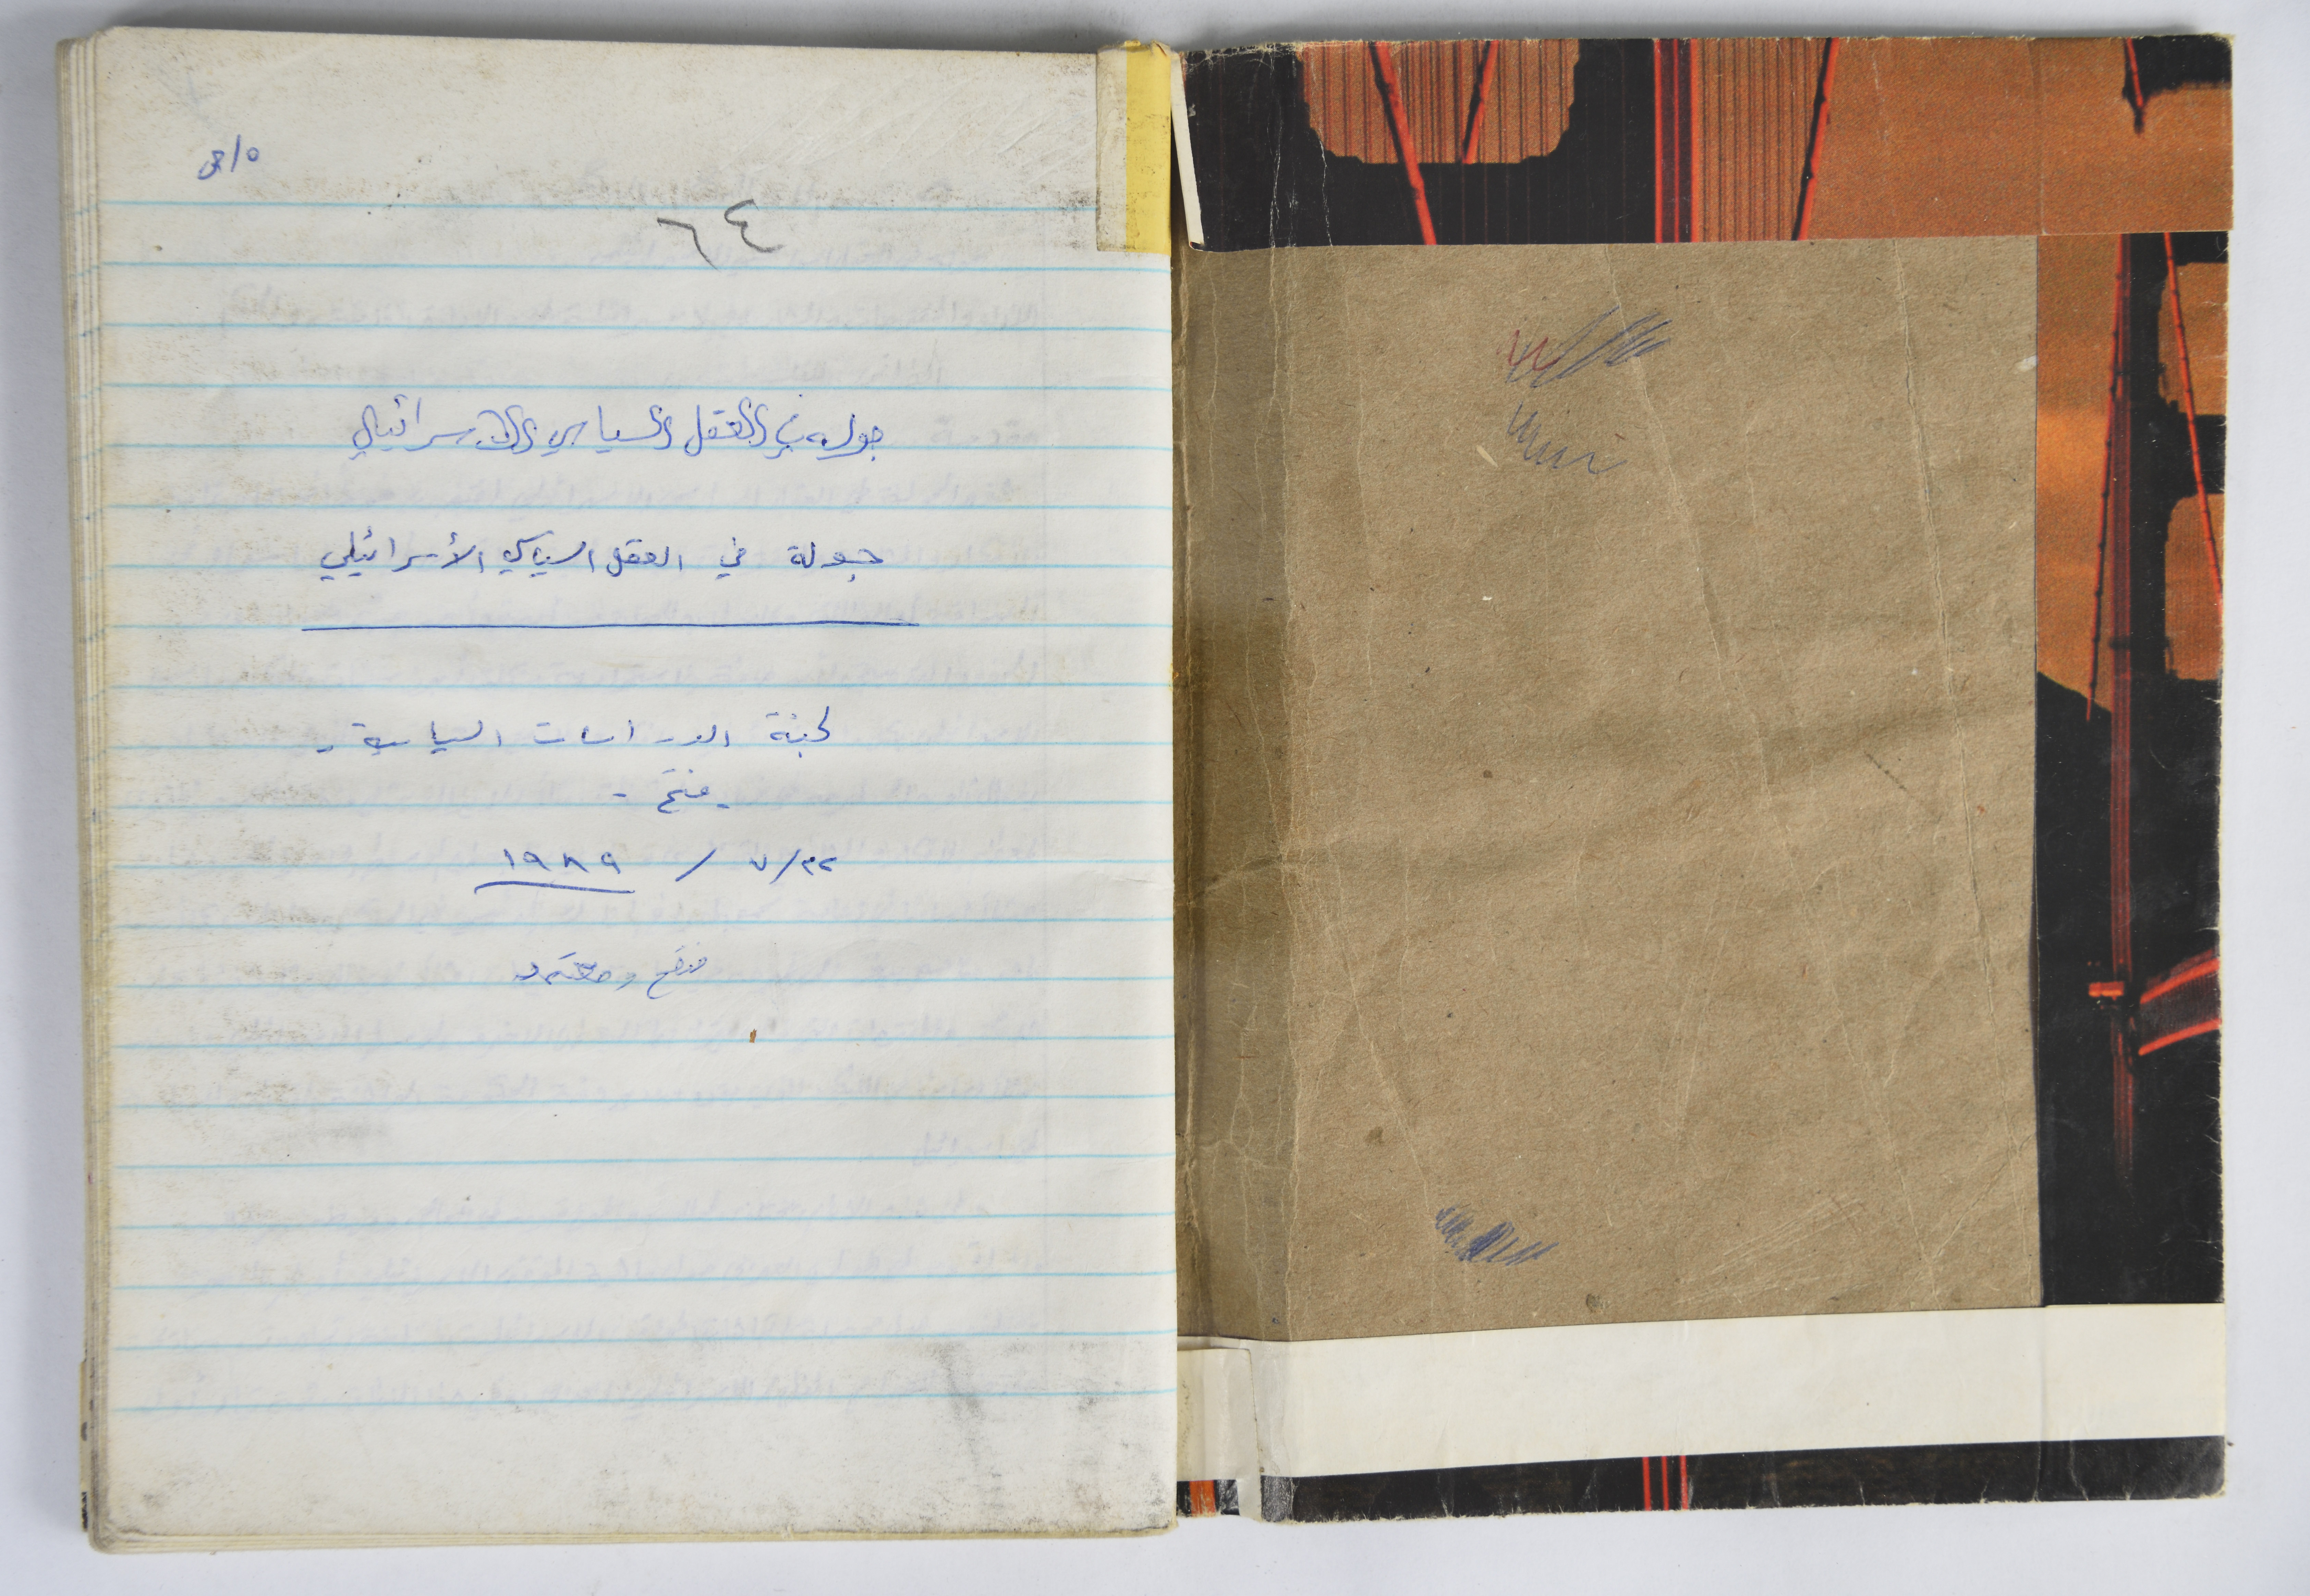 ٦٤
جولة في العقل السياسي الاسرائيلي
جولة في العقل السياسي الأسرائيلي
لجنة الدراسات السياسية -
- فتح -
٢٢/ ٧ / ١٩٨٩
منقح ومعتمد